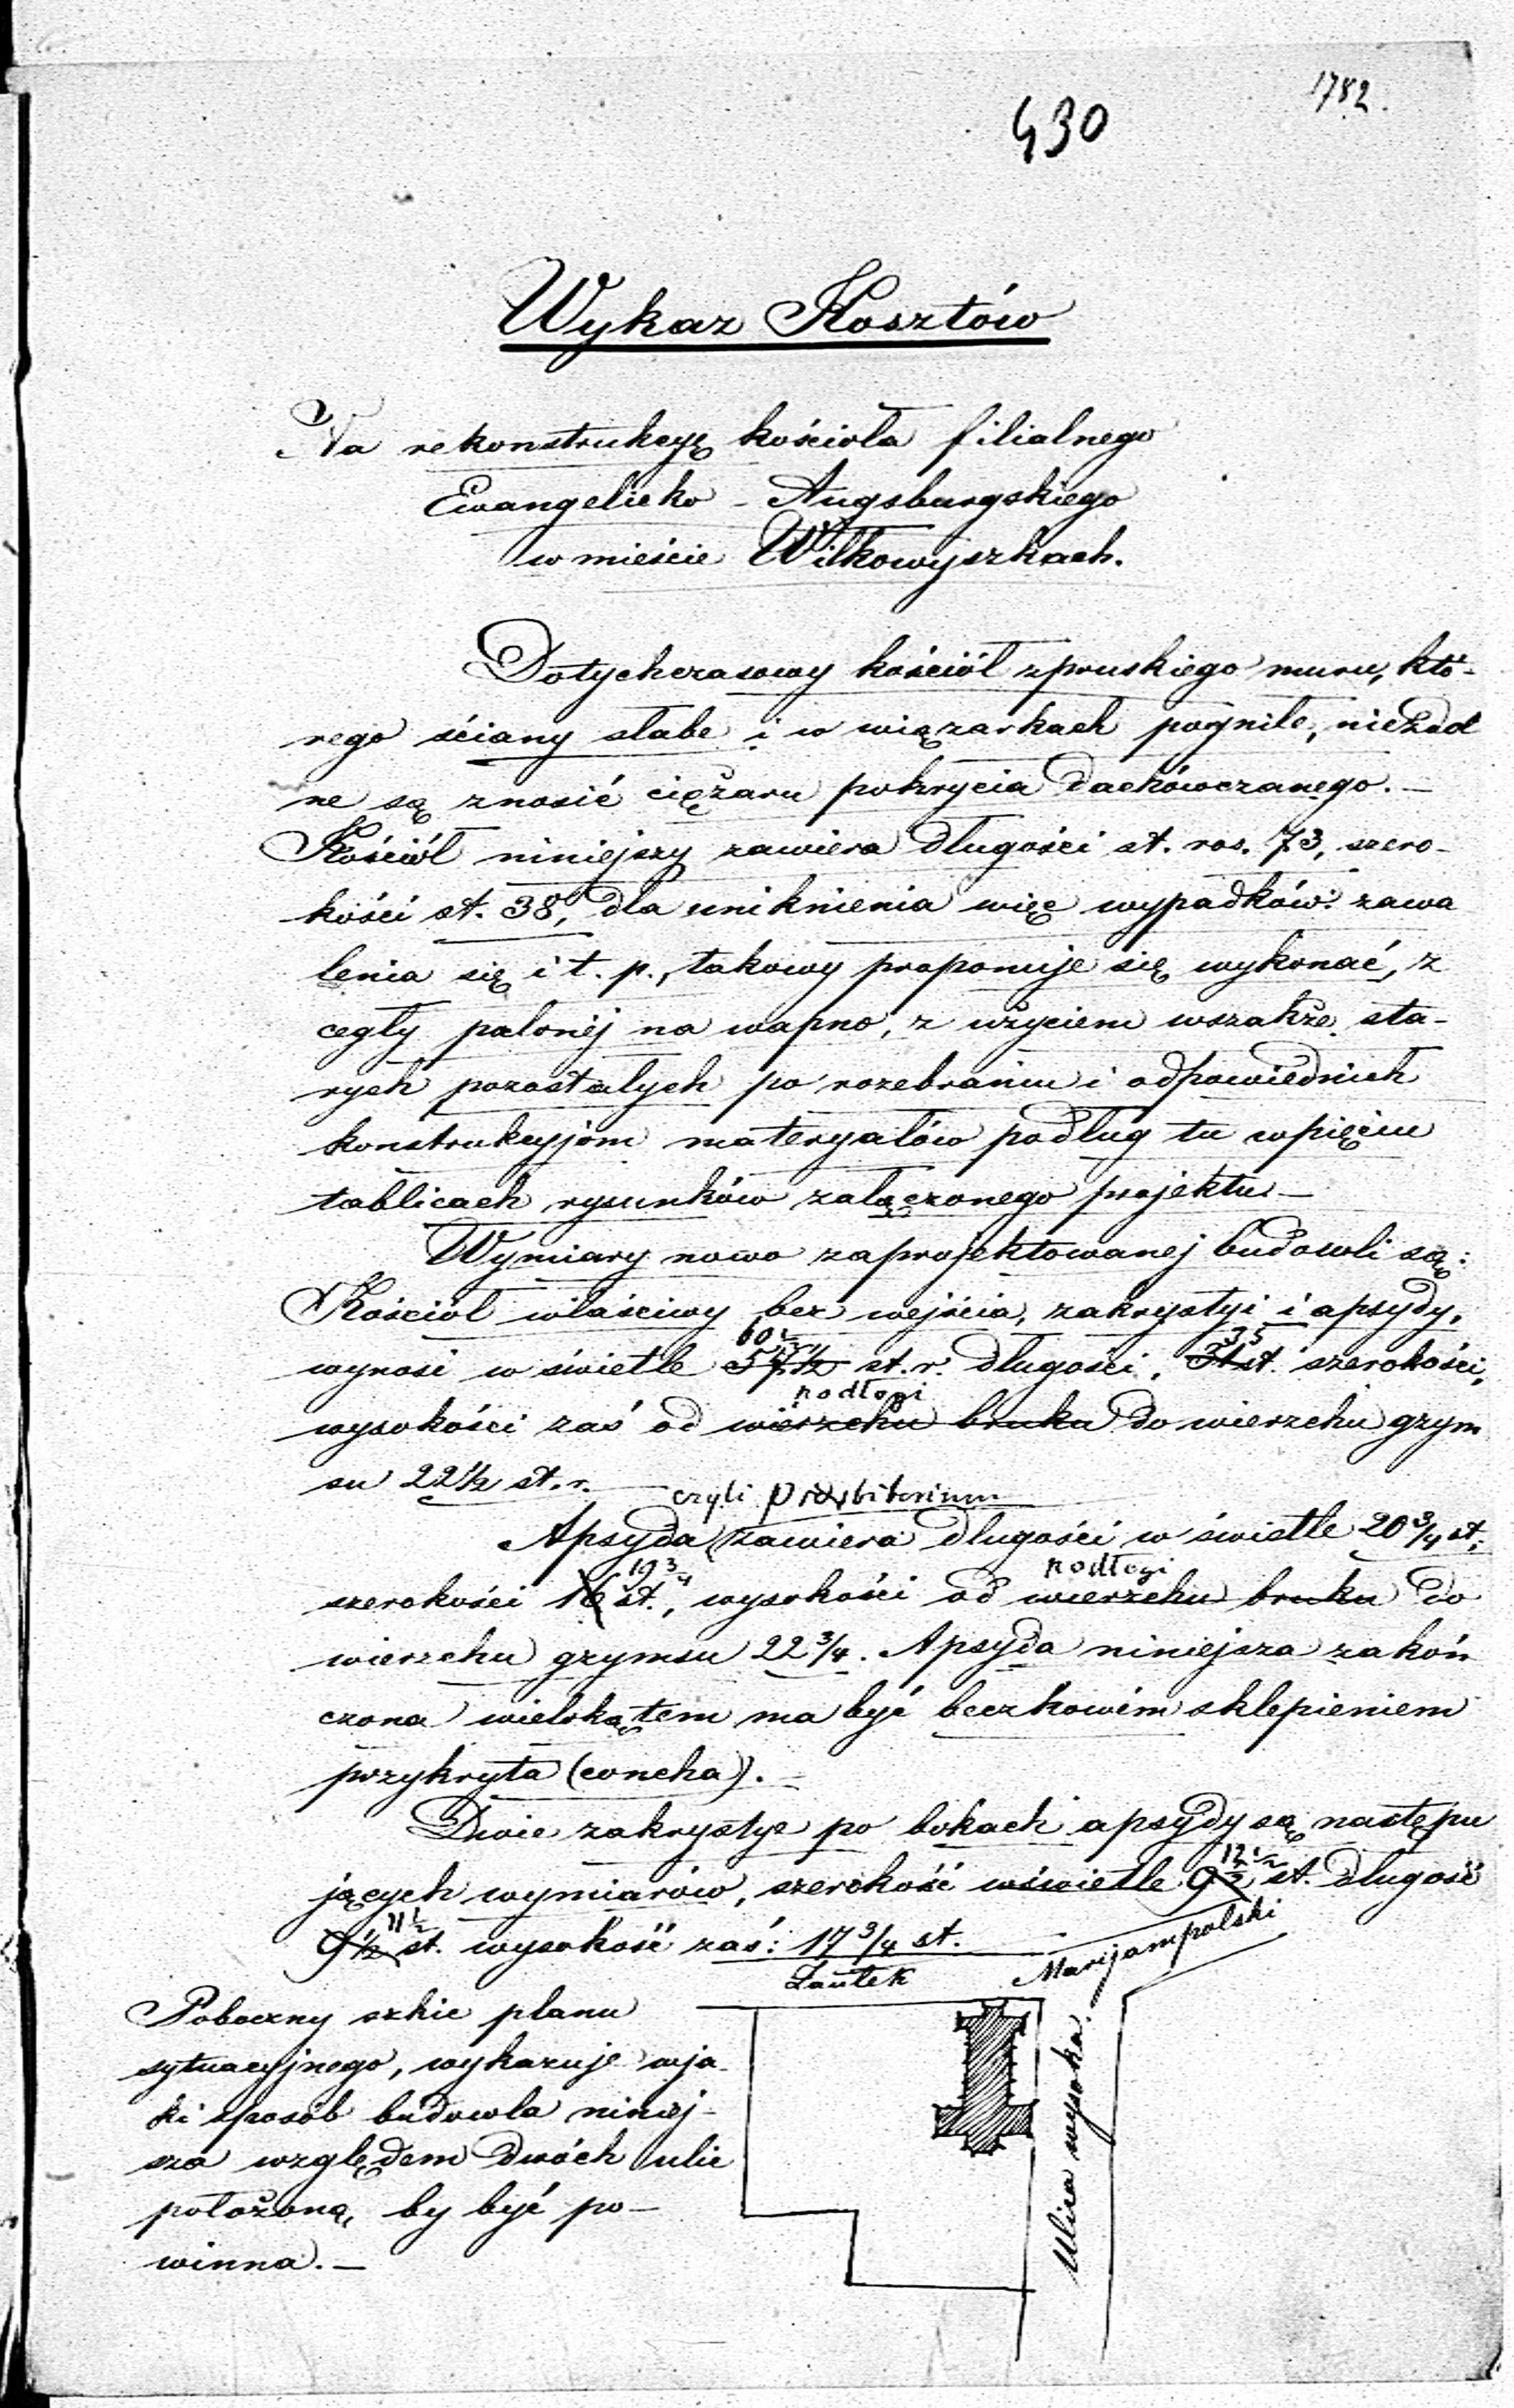 1782.
430
Wykaz Kosztów
Na rekonstrukcyę kościoła filialnego
Ewangelicko - Augsburgskiego
w mieście Wiłkowyszkach.
Dotychczasowy kościół z pruskiego muru, któ-
rego ściany słabe i w wiązarkach pognite, niezdol
ne są znosić ciężaru pokrycia dachówczanego. —
Kościół niniejszy zawiera długości st. ros. 73, szero-
kości st. 38, dla uniknienia więc wypadków zawa
lenia się i t. p., takowy proponuje się wykonać, z
cegły palonéj na wapno, z użyciem wszakże sta-
rych pozostałych po rozebraniu i odpowiednich
konstrukcyjom materyałów podług tu w pięciu
tablicach rysunków załączonego projektu. —
Wymiary nowo zaprojektowanej budowli są:
Kościół właściwy bez wejścia, zakrystyi i apsydy,
60½ 35
wynosi w świetle 57½ st. r. długości, 31 st. szerokości,
podłogi
wysokości zaś od wierzchu bruku do wierzchu gzym
su 22½ st. r.
czyli presbiterium
Apsyda zawiera długości w świetle 20¾ st.
19¾ podłogi
szerokości 16 st., wysokości od wierzchu bruku do
wierzchu gzymsu 22¾. Apsyda niniejsza zakoń
czona wielokątem ma być beczkowém sklepieniem
przykryta (concha). —
Dwie zakrystye po bokach apsydy są następu
12½
jących wymiarów, szerokość w świetle 9½ st. długość
11½
9½ st. wysokość zaś: 17¾ st.
Zaułek
Maryjampolski
Ulica wysoka.
Poboczny szkic planu
sytuacyjnego, wykazuje w ja-
ki sposób budowla niniej-
sza względem dwóch ulic
położoną, by być po-
winna. —